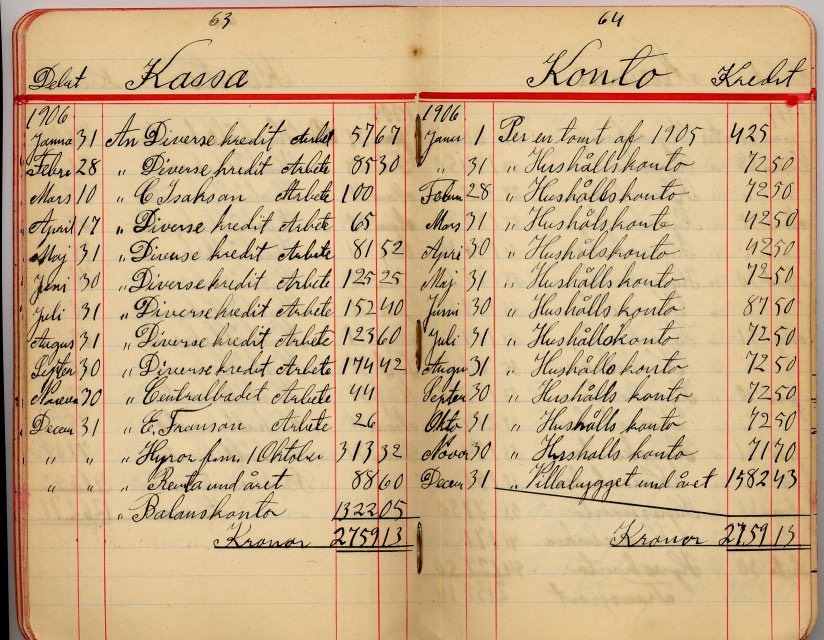 63
Debet Kassa
1906
Janua 31 An Diverse kredit Arbet 57 67
Febre 28 " Diverse kredit Arbete 85 30
Mars 10 " C Isakson Arbete 100
April 17 " Diverse kredit Arbete 65
Maj 31 " Diverse kredit Arbete 81 52
Juni 30 " Diverse kredit Arbete 125 25
Juli 31 " Diverse kredit Arbete 152 40
Augus 31 " Diverse kredit Arbete 123 60
Septer 30 " Diverse kredit Arbete 174 42
Novem 30 " Centralbadet Arbete 44
Decem 31 " E. Franson Arbete 26
" " " Hyror frm 1 Oktober 313 32
" " " Renta und året 88 60
" Balanskonto 1322 05
Kronor 2759 13
64
Konto Kredit
1906
Janur 1 Per en tomt af 1905 425
" 31 " Hushållskonto 72 50
Februn 28 " Hushållskonto 72 50
Mars 31 " Hushålskonto 42 50
Apri 30 " Hushålskonto 42 50
Maj 31 " Hushålls konto 72 50
Juni 30 " Hushålls konto 87 50
Juli 31 " Hushållskonto 72 50
Augu 31 " Hushålls konto 72 50
Septer 30 " Hushålls konto 72 50
Okto 31 " Hushålls konto 72 50
Novor 30 " Husshalls konto 71 70
Decem 31 " Villabygget und året 1582 43
Kronor 2759 13